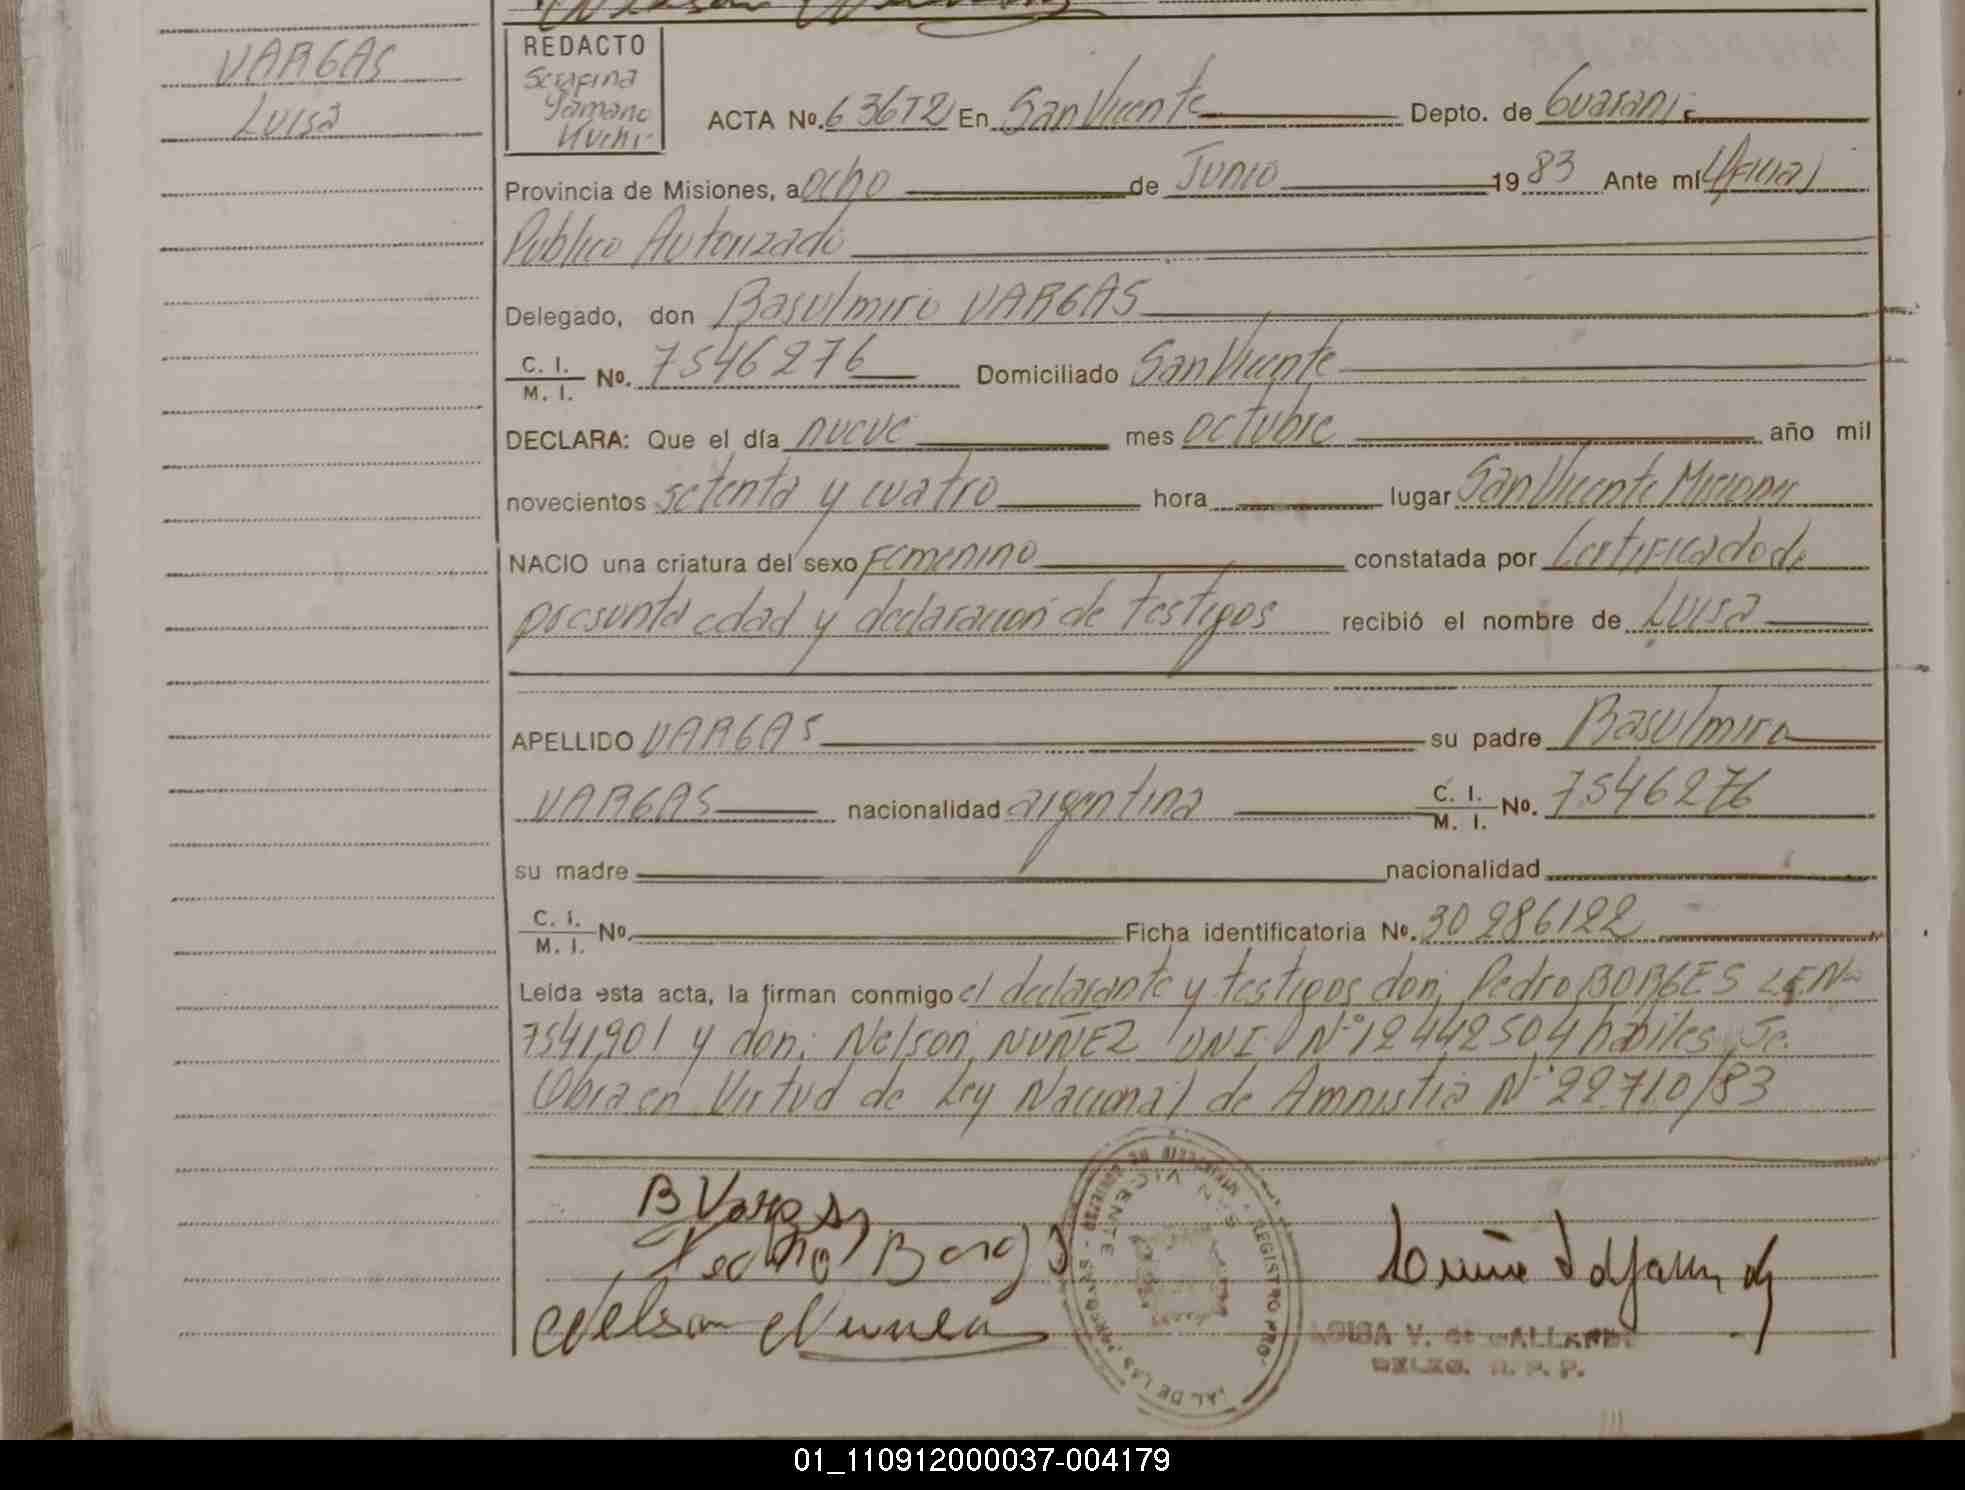 VARGAS
Luisa
REDACTO
Serafina
Yamano
ACTA Nº. 636T2 En San Vicente Depto. de Guarani
Provincia de Misiones, a ocho de Junio 19 83 Ante mí Oficial
Publico Autorizado
Delegado, don Basulmiro VARGAS
C. I. M. I. Nº. 7546276 Domiciliado San Vicente
DECLARA: Que el día nueve mes octubre año mil
novecientos setenta y cuatro hora lugar San Vicente Misiones
NACIO una criatura del sexo Femenino constatada por Certificado de
presunta edad y declaracion de testigos recibió el nombre de Luisa
APELLIDO VARGAS su padre Basulmiro
VARGAS nacionalidad argentina C. I. M. I. Nº. 7546276
su madre nacionalidad
C. I. M. I. Nº. Ficha identificatoria Nº. 30 286122
Leída esta acta, la firman conmigo el declarante y testigos don; Pedro BORGES L.E.Nº
7541901 y don; Nelson NUÑEZ DNI Nº 12442504 habiles Se
Obra en Virtud de Ley Nacional de Amnistia Nº 22.710/83
B Vargas
Pedro Borges
Nelson Nunez
SAN VICENTE
REGISTRO PRO-
AL DE LAS PERSONAS
01_110912000037-004179